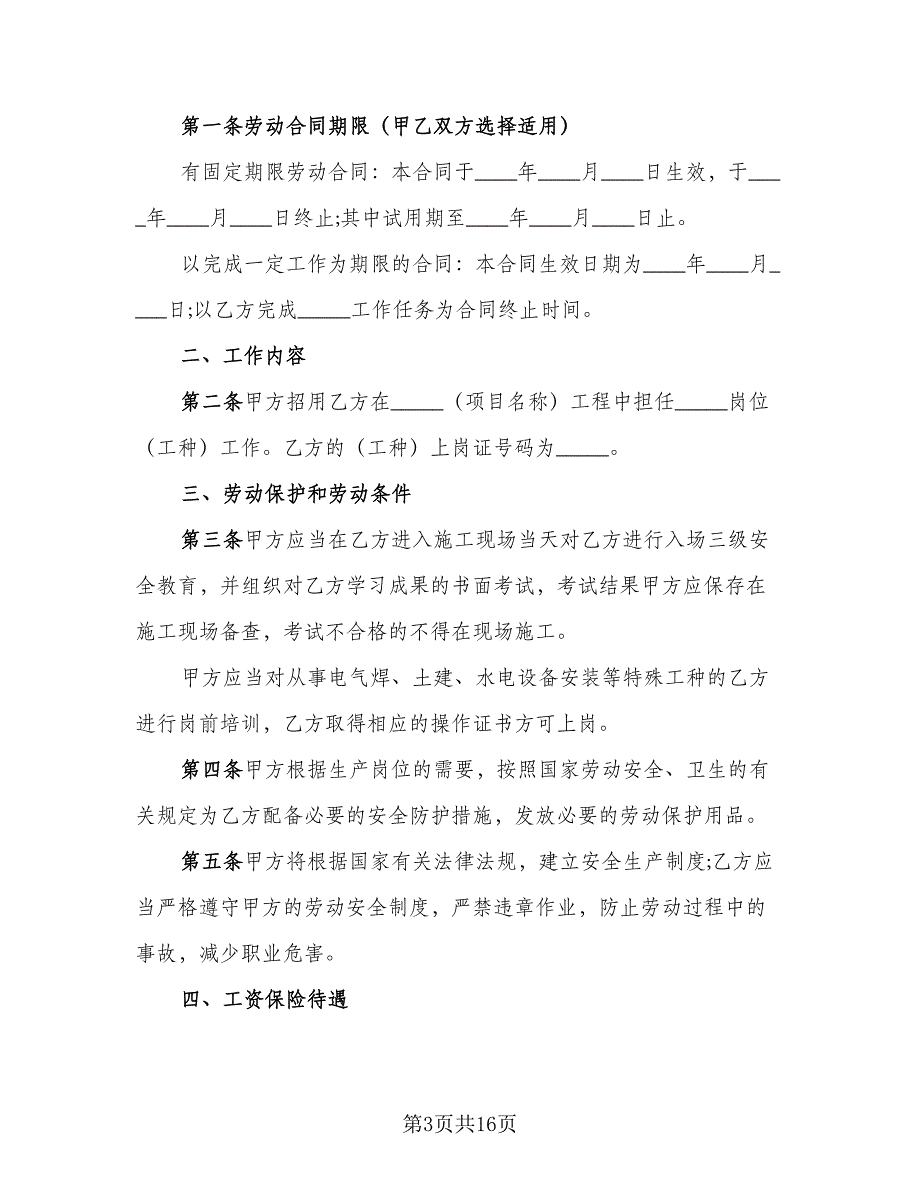 第一条劳动合同期限（甲乙双方选择适用）
有固定期限劳动合同：本合同于____年____月____日生效，于___
_年____月____日终止;其中试用期至____年____月____日止。
以完成一定工作为期限的合同：本合同生效日期为____年____月_
___日;以乙方完成_____工作任务为合同终止时间。
二、工作内容
第二条甲方招用乙方在_____（项目名称）工程中担任_____岗位
（工种）工作。乙方的（工种）上岗证号码为_____。
三、劳动保护和劳动条件
第三条甲方应当在乙方进入施工现场当天对乙方进行入场三级安
全教育，并组织对乙方学习成果的书面考试，考试结果甲方应保存在
施工现场备查，考试不合格的不得在现场施工。
甲方应当对从事电气焊、土建、水电设备安装等特殊工种的乙方
进行岗前培训，乙方取得相应的操作证书方可上岗。
第四条甲方根据生产岗位的需要，按照国家劳动安全、卫生的有
关规定为乙方配备必要的安全防护措施，发放必要的劳动保护用品。
第五条甲方将根据国家有关法律法规，建立安全生产制度;乙方应
当严格遵守甲方的劳动安全制度，严禁违章作业，防止劳动过程中的
事故，减少职业危害。
四、工资保险待遇
第3页共16页